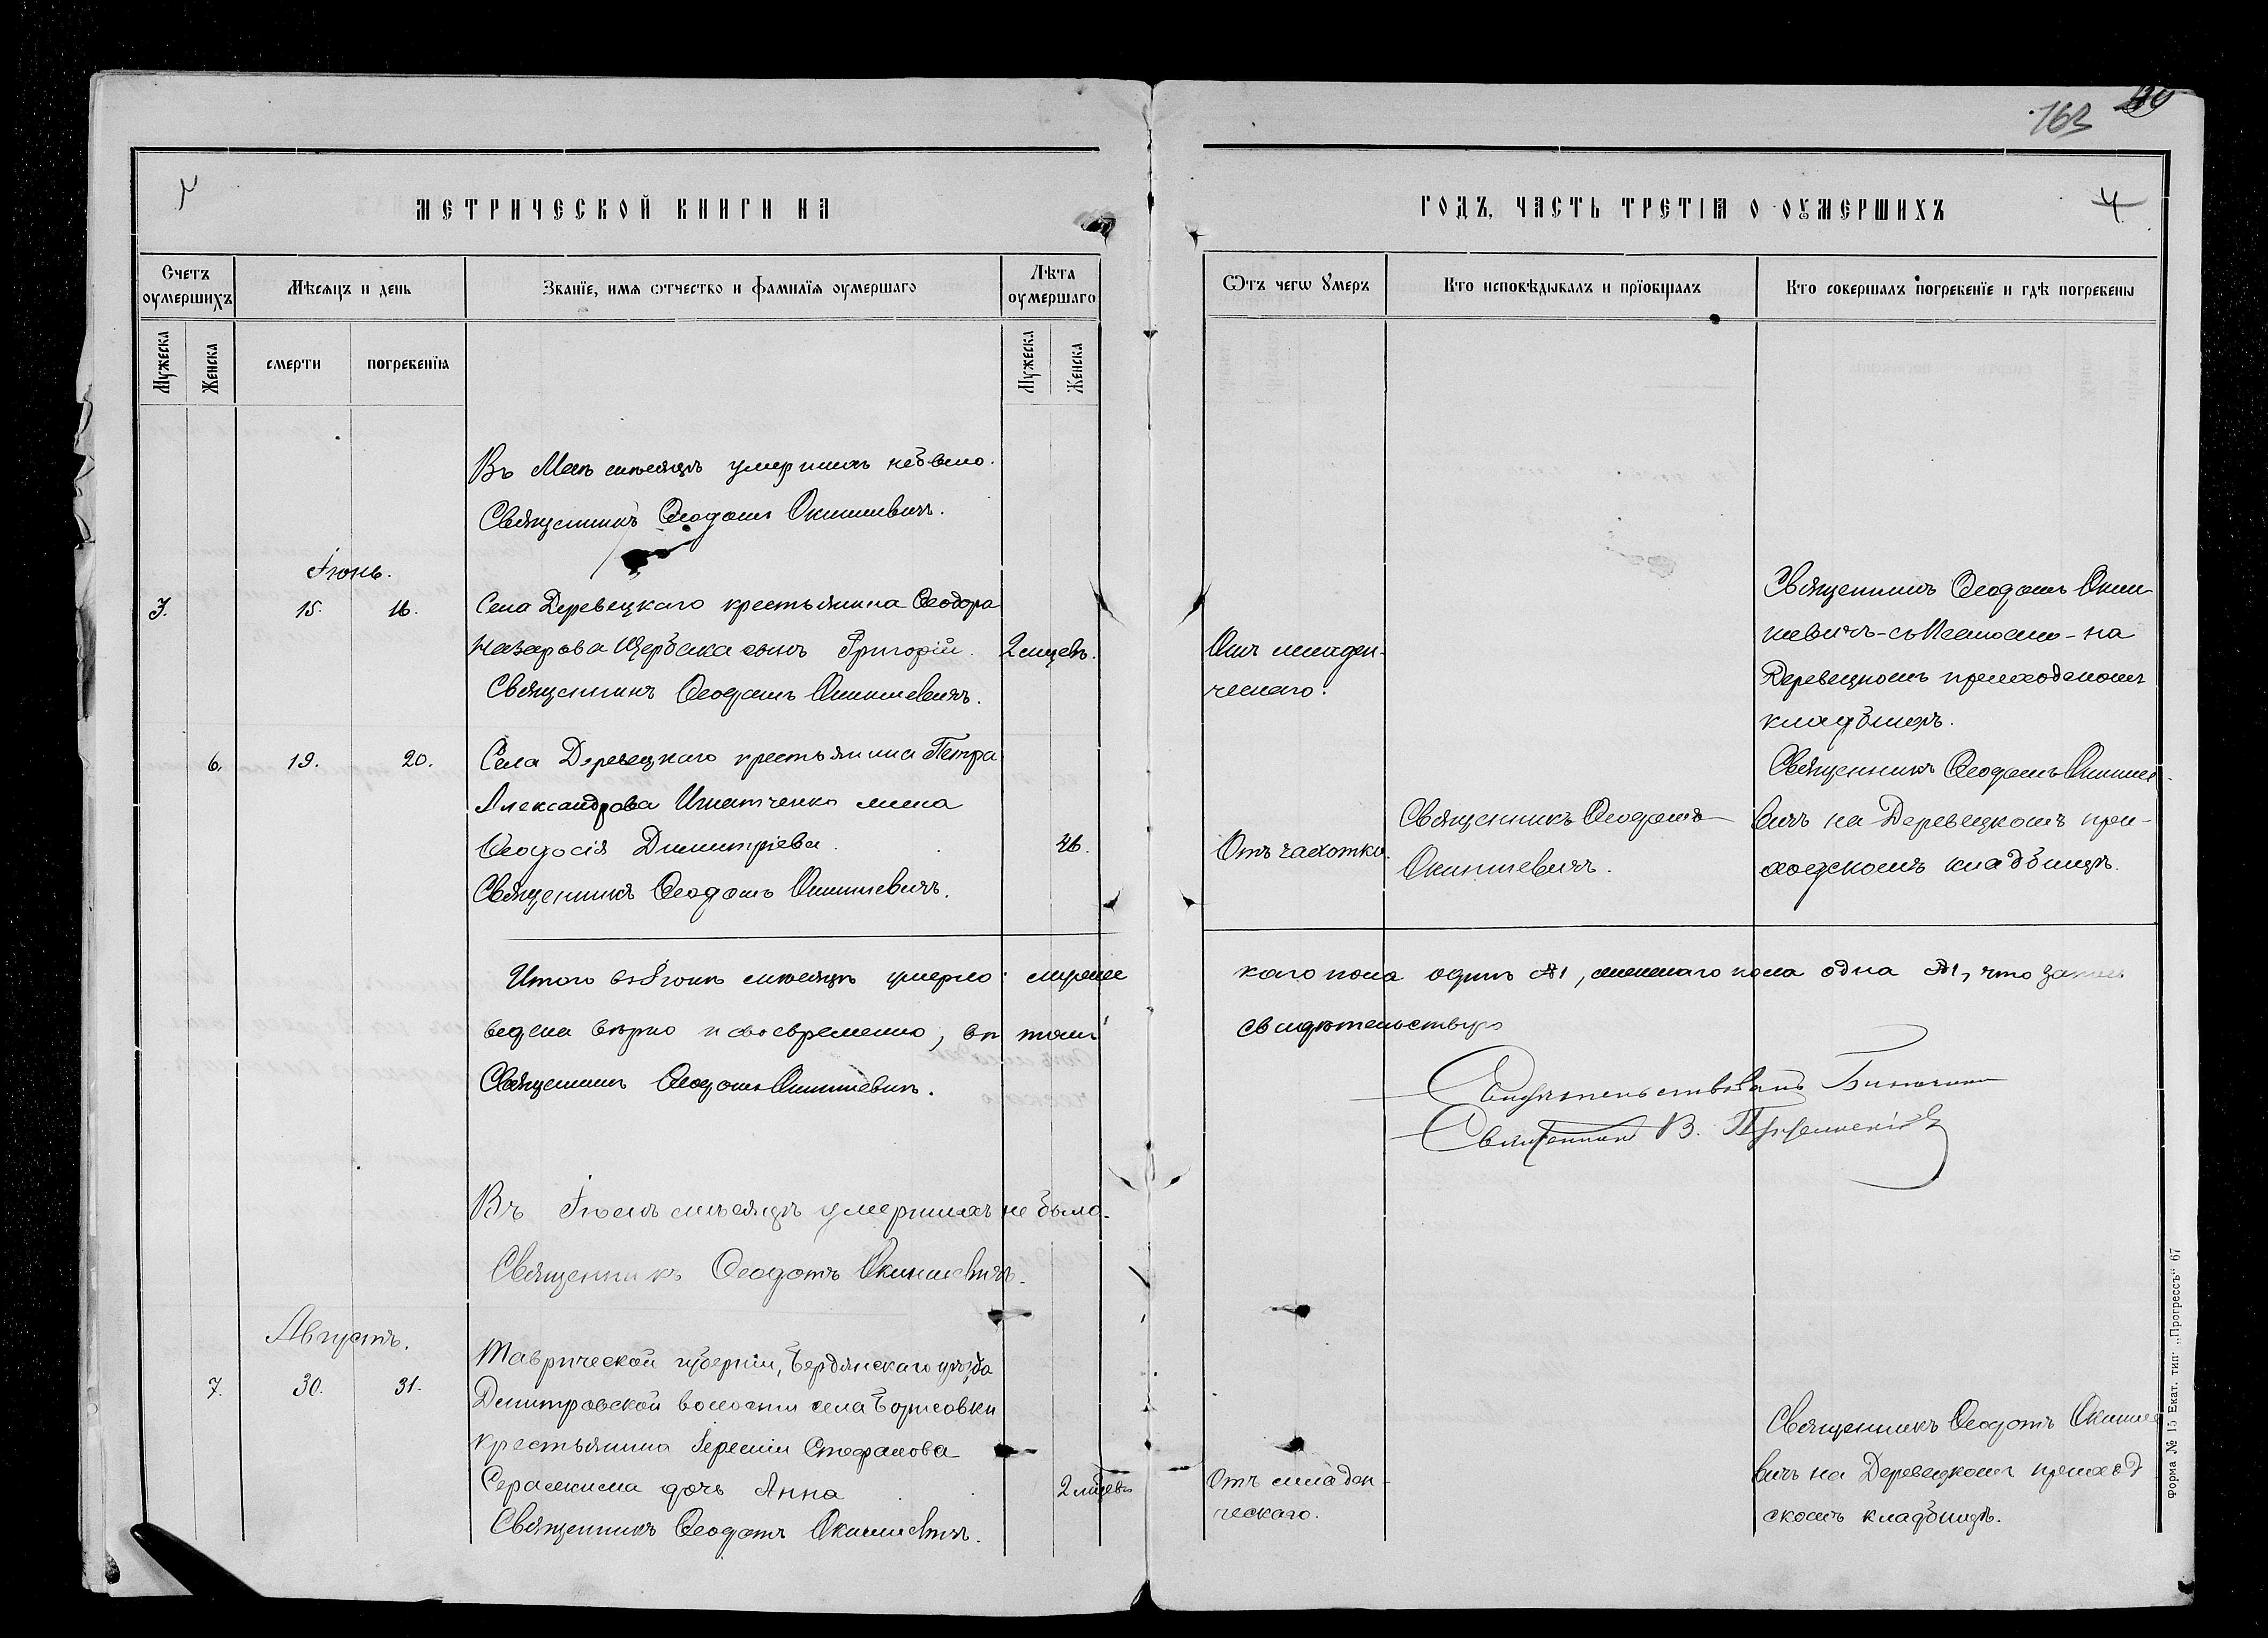 163
МЕТРИЧЕСКОЙ КНИГИ НА
ГОДЪ, ЧАСТЬ ТРЕТІѦ О ОУМЕРШИХЪ
4
Счетъ оумершихъ
Мѣсяцъ и день
Званїе, имя ѿтчество и фамилїя оумершаго
Лѣта оумершаго
Ѿтъ чегѡ Ȣмеръ
Кто исповѣдывалъ и прїобщалъ
Кто совершалъ погребенїе и гдѣ погребены
Мужеска
Женска
смерти
погребенїя
Мужеска
Женска
Въ Маѣ мѣсяцѣ умершихъ небыло.
Священникъ Ѳеодотъ Окиншевичъ.
Іюнь.
3.
15.
16.
Села Деревецкаго крестьянина Ѳеодора
Назарова Щербака сынъ Григорій.
2 мѣсв.
Священникъ Ѳеодотъ Окиншевичъ.
Отъ младен-
ческаго.
Священникъ Ѳеодотъ Окин-
шевичъ - съ Псаломщ - на
Деревецкомъ приходскомъ
кладбищѣ.
6.
19.
20.
Села Деревецкаго крестьянина Петра
Александрова Игнатченко жена
Ѳеодосія Димитріева.
46.
Священникъ Ѳеодотъ Окиншевичъ.
Отъ чахотки.
Священникъ Ѳеодотъ
Окиншевичъ.
Священникъ Ѳеодотъ Окинше-
вичъ на Деревецкомъ при-
ходскомъ кладбищѣ.
Итого въ Іюнѣ мѣсяцѣ умерло: мужес
каго пола одинъ №1, женскаго пола одна №1, что запись
ведена вѣрно и своевременно, въ томъ
свидѣтельствую
Священникъ Ѳеодотъ Окиншевичъ.
Свидѣтельствовалъ
Священникъ В.
Въ Іюлѣ мѣсяцѣ умершихъ не было.
Священникъ Ѳеодотъ Окиншевичъ.
Августъ.
7.
30.
31.
Таврической губерніи, Бердянскаго уѣзда
Димитровской волости села Борисовки
крестьянина Іереміи Стефанова
дочь Анна
Священникъ Ѳеодотъ Окиншевичъ.
Отъ младен-
ческаго.
Священникъ Ѳеодотъ Окинше
вичъ на Деревецкомъ приход
скомъ кладбищѣ.
Форма № 15 Екат. тип. „Прогрессъ“ 67